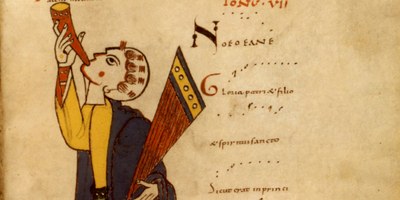 TONU. VII
NOEOEANE
Gloria patri & filio
& spirituisancto
Sicut erat in princi